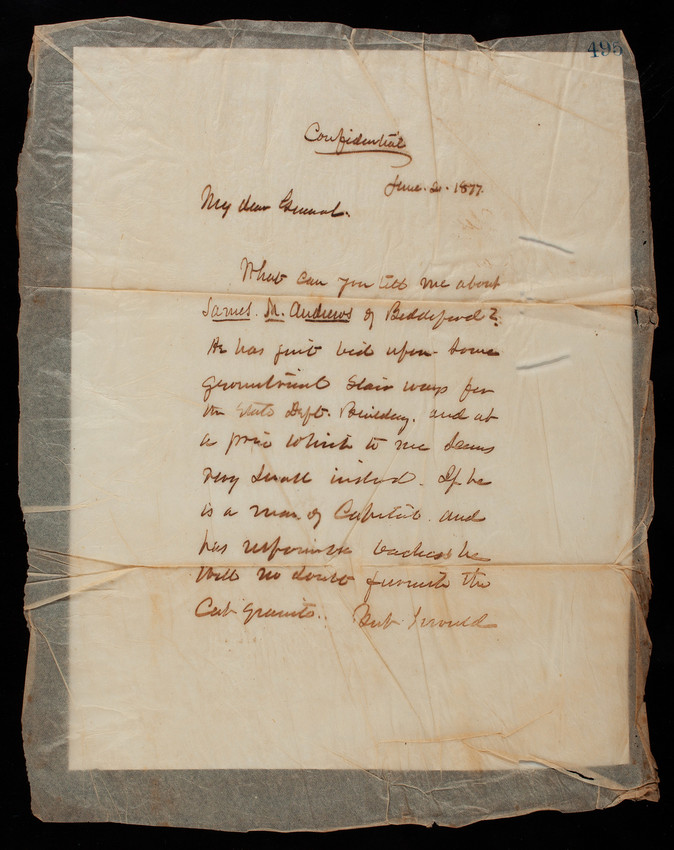 495
Confidential
June. 2. 1877.
My dear General.
What can you tell me about
James. M. Andrews of Biddeford?
He has just bid upon some
geometrical Stair ways for
the State Dept. Building. and at
a price which to me seems
very small indeed. If he
is a man of Capital and
has responsible backers he
will no doubt furnish the
Cut granite. But I would